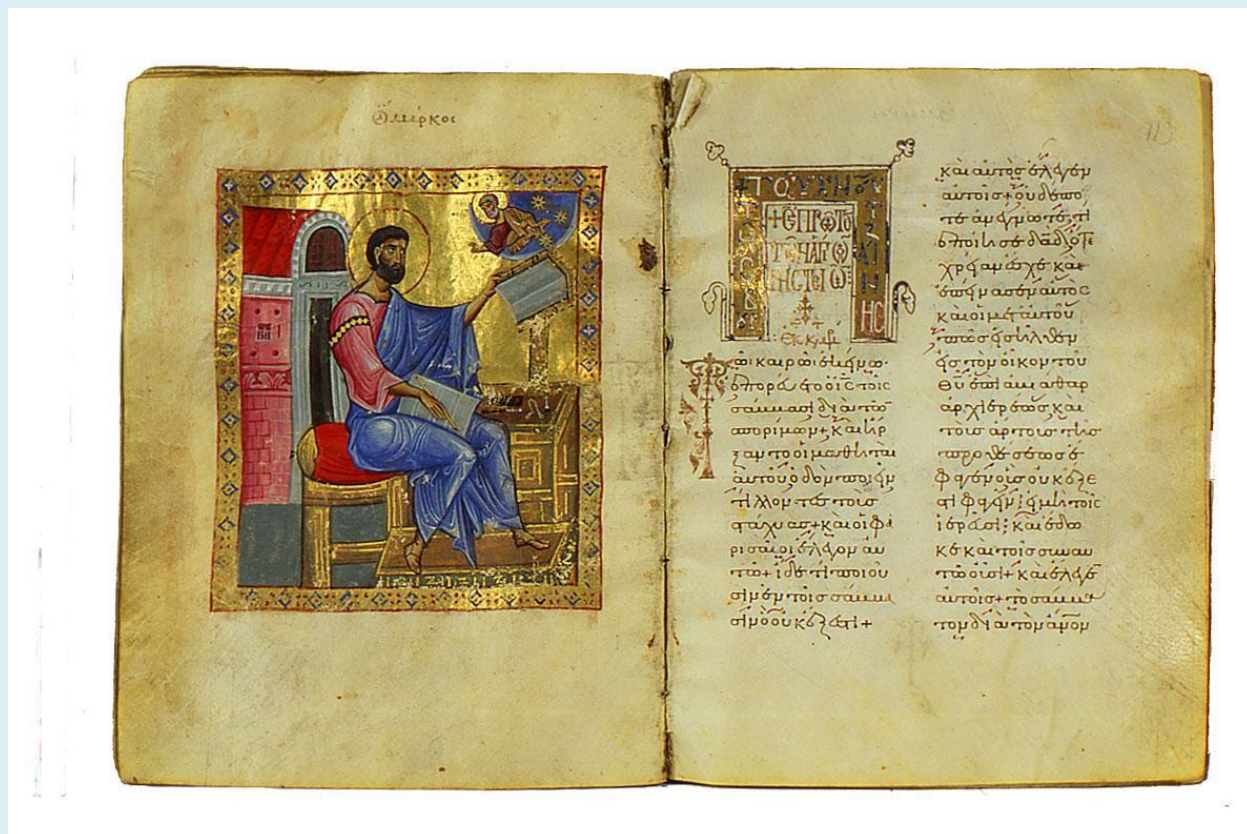 Ὁ Μάρκος
113
Τῶι καιρῶι ἐκείνω·
ἐπορεύετο ὁ ι̅ς̅ τοῖς
σάββασι διὰ τῶν
σπορίμων+ καὶ ἤρ
ξαντο οἱ μαθηταὶ
αὐτοῦ ὁδὸν ποιεῖν
τίλλοντες τοὺς
στάχυας+ καὶ οἱ φα
ρισαῖοι ἔλεγον αὐ
τῶ+ ἴδε τί ποιοῦ
σιν ἐν τοῖς σάββα
σιν ὃ οὐκ ἔξεστι+
καὶ αὐτὸς ἔλεγεν
αὐτοῖς+ οὐδέπο
τε ἀνέγνωτε τί
ἐποίησε δα̅δ̅ ὅτε
χρείαν ἔσχε καὶ
ἐπείνασεν αὐτὸς
καὶ οἱ μετ αὐτοῦ
πῶς εἰσῆλθεν
εἰς τὸν οἶκον τοῦ
θ̅υ̅ ἐπὶ ἀβιαθαρ
ἀρχιερέως καὶ
τοὺς ἄρτους τῆς
προθέσεως ἔ
φαγεν οὓς οὐκ ἔξε
στι φαγεῖν· εἰ μὴ τοῖς
ἱερεῦσι; καὶ ἔδω
κε καὶ τοῖς σὺν αὐ
τῶ οὖσι+ καὶ ἔλεγε
αὐτοῖς+ τὸ σάββα
τον διὰ τὸν α̅ν̅ον